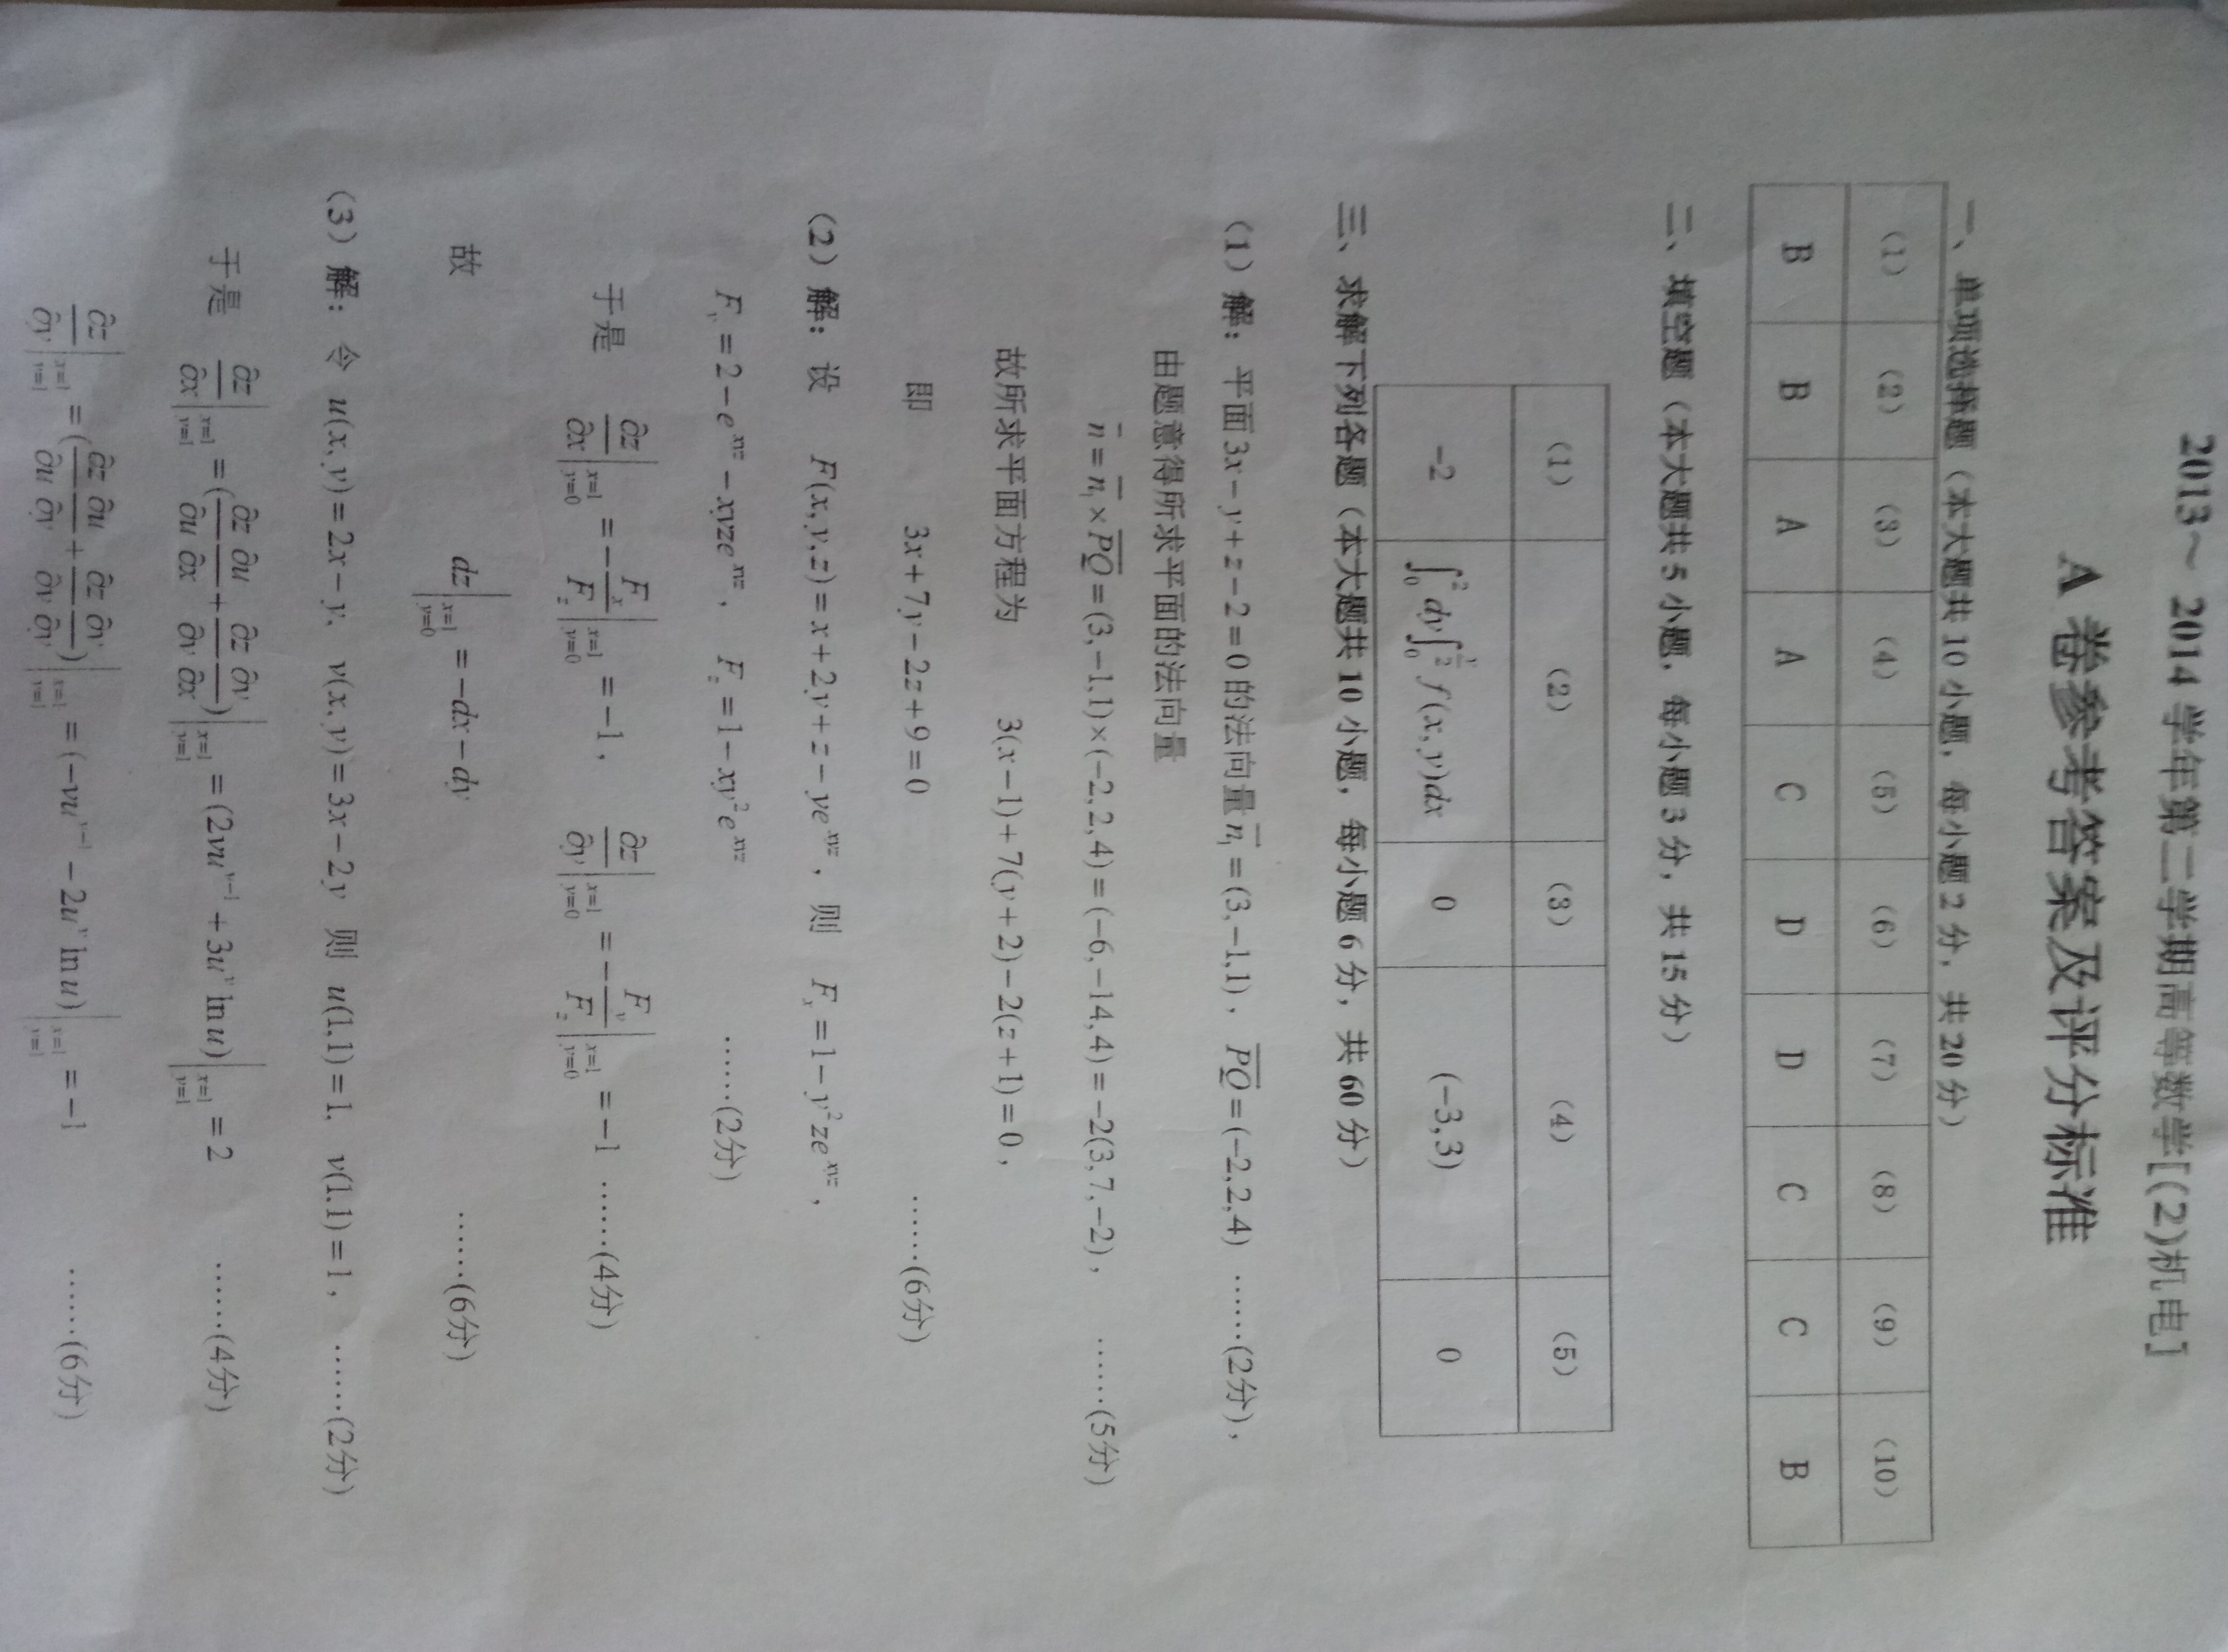 2013～ 2014 学年第二学期高等数学[(2)机电]
A 卷参考答案及评分标准
一、单项选择题（本大题共 10 小题，每小题 2 分，共 20 分）
（1） （2） （3） （4） （5） （6） （7） （8） （9） （10）
B B A A C D D C C B
二、填空题（本大题共 5 小题，每小题 3 分，共 15 分）
（1） （2） （3） （4） （5）
-2 ∫₀² dy∫₀^{y/2} f(x,y)dx 0 (-3,3) 0
三、求解下列各题（本大题共 10 小题，每小题 6 分，共 60 分）
（1）解：平面 3x-y+z-2=0 的法向量 n₁=(3,-1,1)，PQ=(-2,2,4) ……(2分)，
由题意得所求平面的法向量
n=n₁×PQ=(3,-1,1)×(-2,2,4)=(-6,-14,4)=-2(3,7,-2)， ……(5分)
故所求平面方程为 3(x-1)+7(y+2)-2(z+1)=0，
即 3x+7y-2z+9=0 ……(6分)
（2）解：设 F(x,y,z)=x+2y+z-ye^{xyz}，则 F_x=1-y²ze^{xyz}，
F_y=2-e^{xyz}-xyze^{xyz}， F_z=1-xy²e^{xyz} ……(2分)
于是 ∂z/∂x|_{x=1,y=0}=-F_x/F_z|_{x=1,y=0}=-1， ∂z/∂y|_{x=1,y=0}=-F_y/F_z|_{x=1,y=0}=-1 ……(4分)
故 dz|_{x=1,y=0}=-dx-dy ……(6分)
（3）解：令 u(x,y)=2x-y, v(x,y)=3x-2y 则 u(1,1)=1, v(1,1)=1， ……(2分)
于是 ∂z/∂x|_{x=1,y=1}=(∂z/∂u ∂u/∂x+∂z/∂v ∂v/∂x)|_{x=1,y=1}=(2vu^{v-1}+3u^v ln u)|_{x=1,y=1}=2 ……(4分)
∂z/∂y|_{x=1,y=1}=(∂z/∂u ∂u/∂y+∂z/∂v ∂v/∂y)|_{x=1,y=1}=(-vu^{v-1}-2u^v ln u)|_{x=1,y=1}=-1 ……(6分)